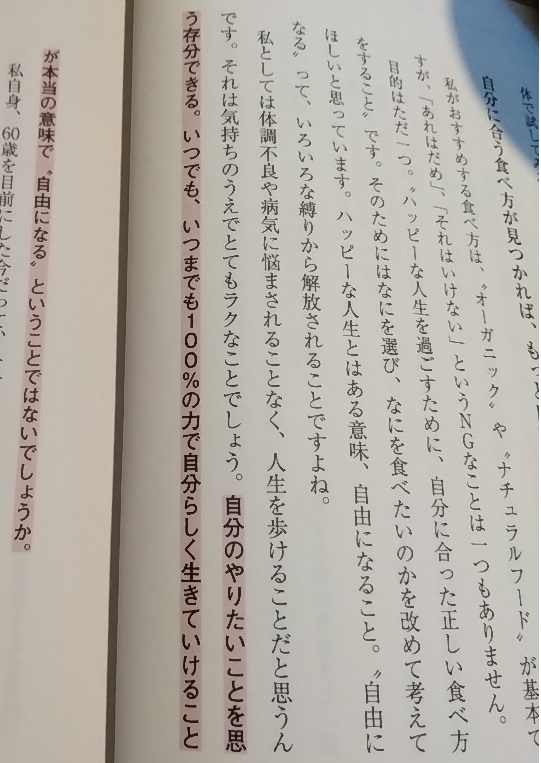 体で試してみ
自分に合う食べ方が見つかれば、もっと
私がおすすめする食べ方は、〝オーガニック〟や〝ナチュラルフード〟が基本で
すが、「あれはだめ」、「それはいけない」というNGなことは一つもありません。
目的はただ一つ。〝ハッピーな人生を過ごすために、自分に合った正しい食べ方
をすること〟です。そのためにはなにを選び、なにを食べたいのかを改めて考えて
ほしいと思っています。ハッピーな人生とはある意味、自由になること。〝自由に
なる〟って、いろいろな縛りから解放されることですよね。
私としては体調不良や病気に悩まされることなく、人生を歩けることだと思うん
です。それは気持ちのうえでとてもラクなことでしょう。自分のやりたいことを思
う存分できる。いつでも、いつまでも100%の力で自分らしく生きていけること
が本当の意味で〝自由になる〟ということではないでしょうか。
私自身、60歳を目前にした今だって、